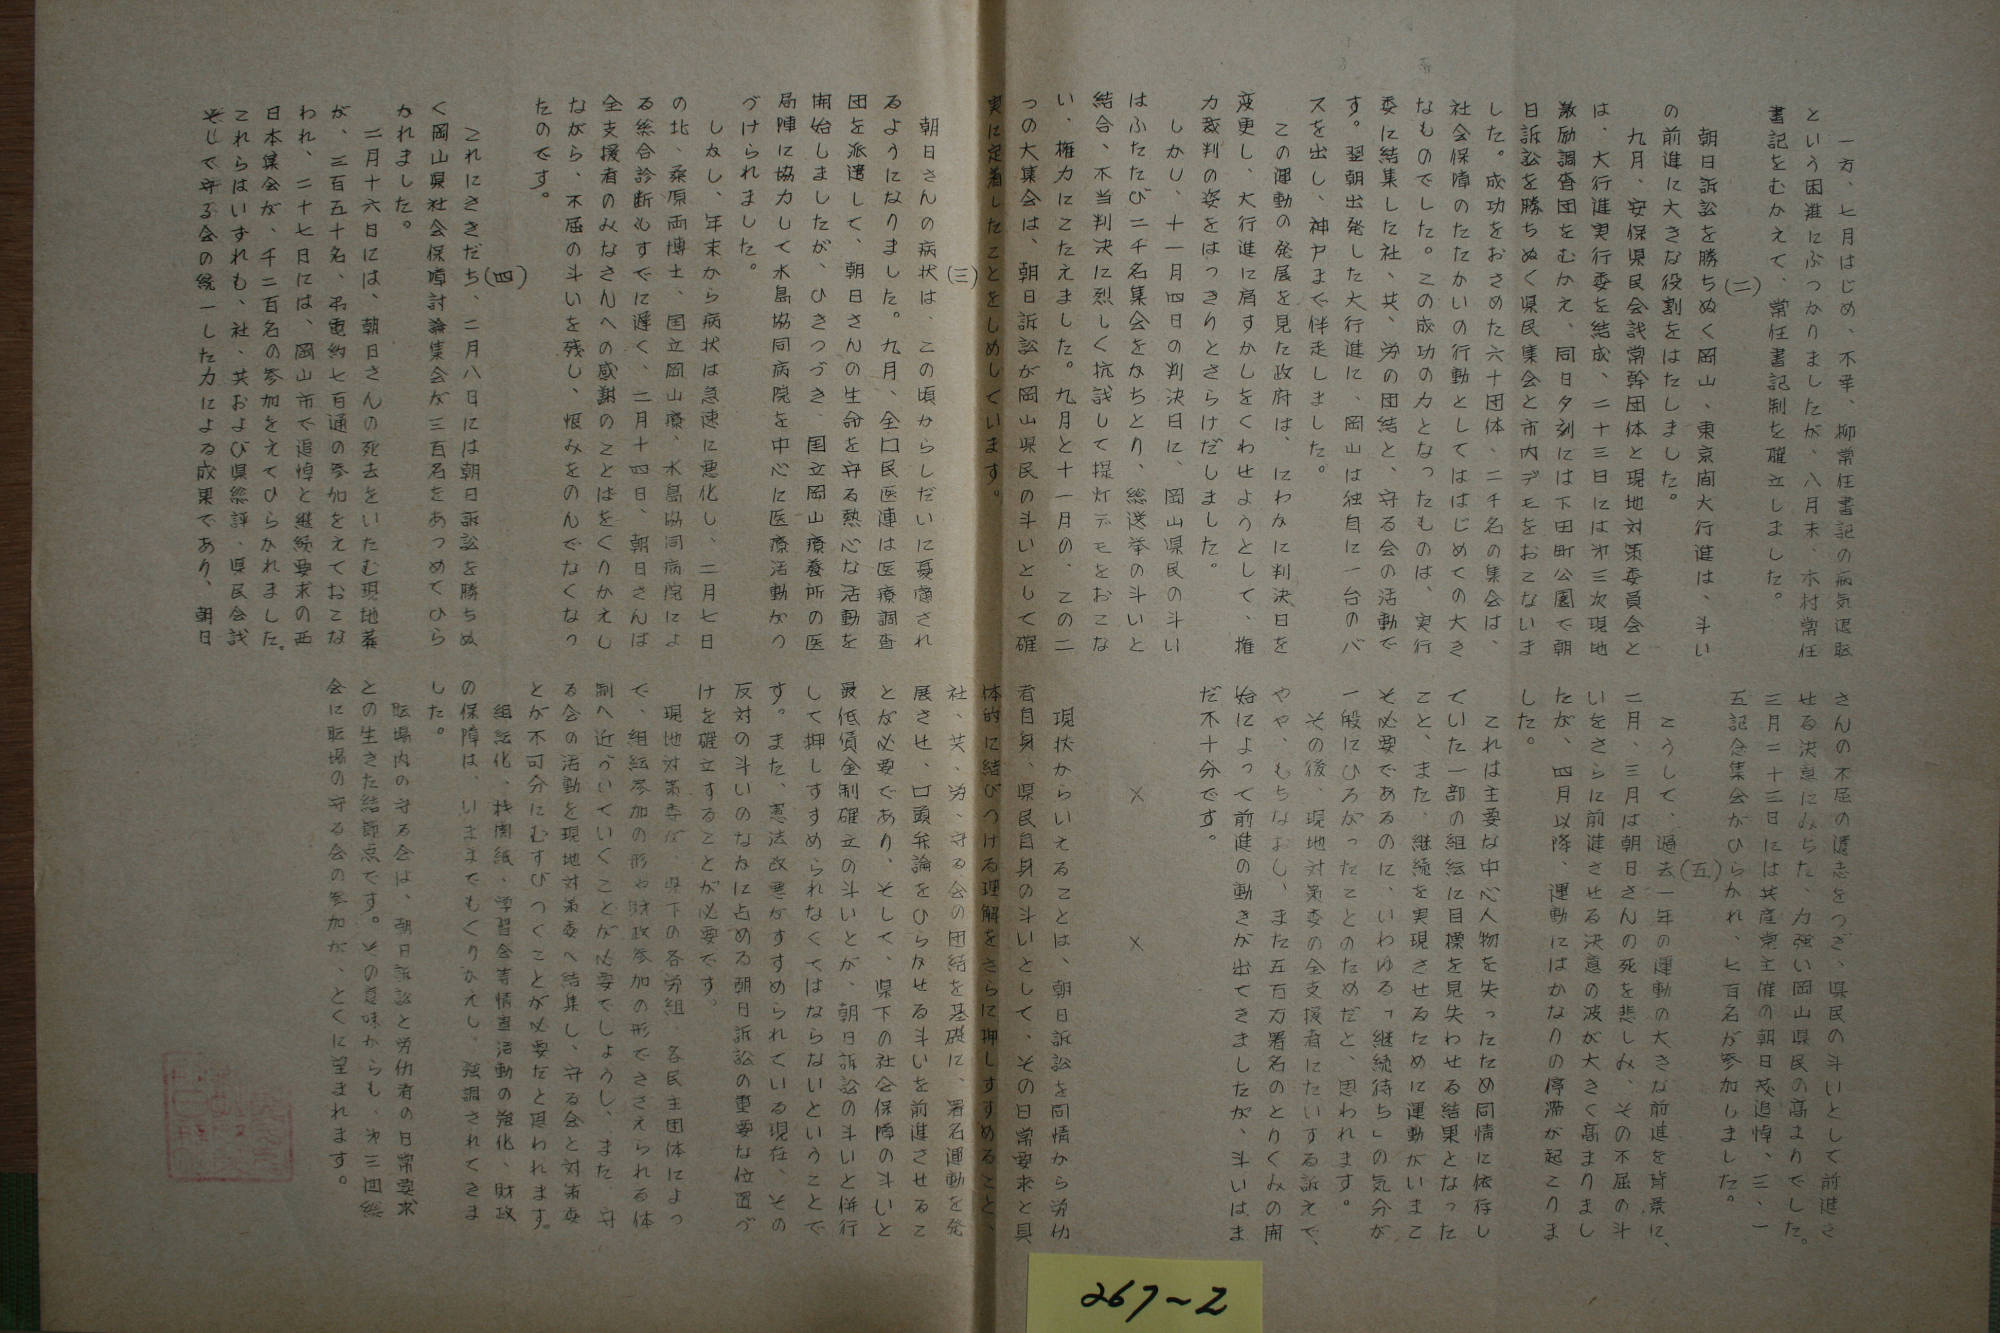 一方、七月はじめ、不幸、柳常任書記の病気退転
という困難にぶつかりましたが、八月末、木村常任
書記をむかえて、常任書記制を確立しました。
(二)
朝日訴訟を勝ちぬく岡山、東京間大行進は、斗い
の前進に大きな役割をはたしました。
九月、安保県民会議常幹団体と現地対策委員会と
は、大行進実行委を結成、二十三日には第三次現地
激励調査団をむかえ、同日夕刻には下田町公園で朝
日訴訟を勝ちぬく県民集会と市内デモをおこないま
した。成功をおさめた六十団体、二千名の集会は、
社会保障のたたかいの行動としてははじめての大き
なものでした。この成功の力となったものは、実行
委に結集した社、共、労の団結と、守る会の活動で
す。翌朝出発した大行進に、岡山は独自に一台のバ
スを出し、神戸まで伴走しました。
この運動の発展を見た政府は、にわかに判決日を
変更し、大行進に肩すかしをくわせようとして、権
力裁判の姿をはっきりとさらけだしました。
しかし、十一月四日の判決日に、岡山県民の斗い
はふたたび二千名集会をかちとり、総選挙の斗いと
結合、不当判決に烈しく抗議して提灯デモをおこな
い、権力にこたえました。九月と十一月の、この二
つの大集会は、朝日訴訟が岡山県民の斗いとして確
実に定着したことをしめしています。
(三)
朝日さんの病状は、この頃からしだいに憂慮され
るようになりました。九月、全日民医連は医療調査
団を派遣して、朝日さんの生命を守る熱心な活動を
開始しましたが、ひきつづき、国立岡山療養所の医
局陣に協力して水島協同病院を中心に医療活動がつ
づけられました。
しかし、年末から病状は急速に悪化し、二月七日
の北、桑原両博士、国立岡山療、水島協同病院によ
る総合診断もすでに遅く、二月十四日、朝日さんは
全支援者のみなさんへの感謝のことばをくりかえし
ながら、不屈の斗いを残し、恨みをのんでなくなっ
たのです。
(四)
これにさきだち、二月八日には朝日訴訟を勝ちぬ
く岡山県社会保障討論集会が三百名をあつめてひら
かれました。
二月十六日には、朝日さんの死去をいたむ現地葬
が、三百五十名、弔電約七百通の参加をえておこな
われ、二十七日には、岡山市で追悼と継続要求の西
日本集会が、千二百名の参加をえてひらかれました。
これらはいずれも、社、共および県総評、県民会議
そして守る会の統一した力による成果であり、朝日
さんの不屈の遺志をつぎ、県民の斗いとして前進さ
せる決意にみちた、力強い岡山県民の高まりでした。
三月二十三日には共産党主催の朝日茂追悼、三、一
五記念集会がひらかれ、七百名が参加しました。
(五)
こうして、過去一年の運動の大きな前進を背景に、
二月、三月は朝日さんの死を悲しみ、その不屈の斗
いをさらに前進させる決意の波が大きく高まりまし
たが、四月以降、運動にはかなりの停滞が起こりま
した。
これは主要な中心人物を失ったため同情に依存し
ていた一部の組織に目標を見失わせる結果となった
こと、また、継続を実現させるために運動がいまこ
そ必要であるのに、いわゆる「継続待ち」の気分が
一般にひろがったことのためだと、思われます。
その後、現地対策委の全支援者にたいする訴えで、
やや、もちなおし、また五百万署名のとりくみの開
始によって前進の動きが出てきましたが、斗いはま
だ不十分です。
× ×
現状からいえることは、朝日訴訟を同情から労仂
者自身、県民自身の斗いとして、その日常要求と具
体的に結びつける理解をさらに押しすすめること、
社、共、労、守る会の団結を基礎に、署名運動を発
展させ、口頭弁論をひらかせる斗いを前進させるこ
とが必要であり、そして、県下の社会保障の斗いと
最低賃金制確立の斗いとが、朝日訴訟の斗いと併行
して押しすすめられなくてはならないということで
す。また、憲法改悪がすすめられている現在、その
反対の斗いのなかに占める朝日訴訟の重要な位置づ
けを確立することが必要です。
現地対策委が、県下の各労組、各民主団体によっ
で、組織参加の形や財政参加の形でささえられる体
制へ近づいていくことが必要でしょうし、また、守
る会の活動を現地対策委へ結集し、守る会と対策委
とが不可分にむすびつくことが必要だと思われます。
組織化、機関紙、学習会等情宣活動の強化、財政
の保障は、いままでもくりかえし、強調されてきま
した。
転場内の守る会は、朝日訴訟と労仂者の日常要求
との生きた結節点です。その意味からも、第三回総
会に転場の守る会の参加が、とくに望まれます。
267~2